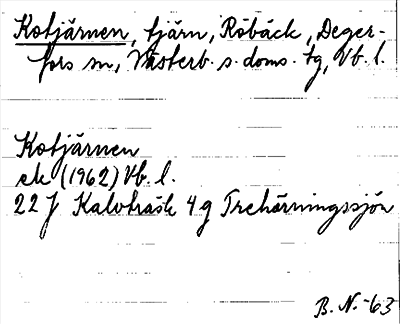 Kotjärnen, tjärn, Röbäck, Deger-
fors sn, Västerb. s. doms. tg, Vb. l.
Kotjärnen
ek (1962) Vb. l.
22 J Kalvträsk 4 g Trehörningssjön
B. N. -63